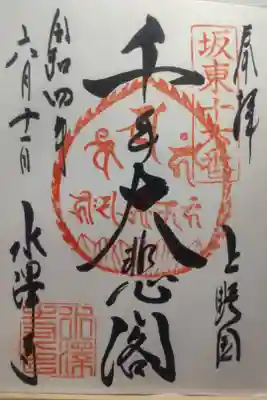 奉拝
坂東十六番
上野国
千手大悲閣
水澤寺
令和四年
六月十一日